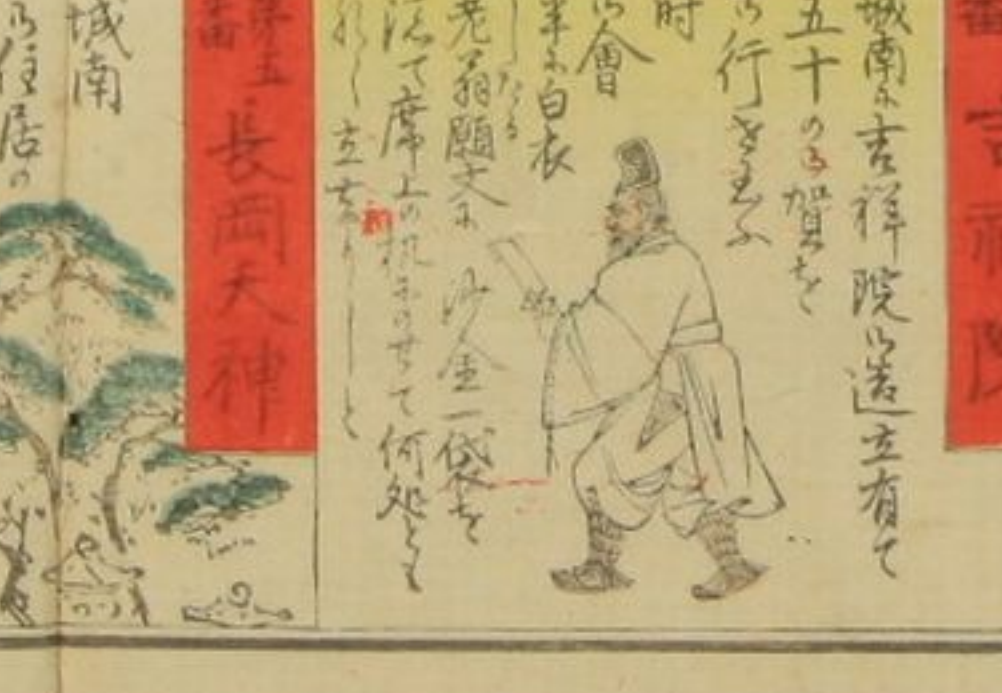 吉祥院
城南に吉祥院御造立有て
五十の御賀を
御行せ玉ふ
时
御會
半に白衣
したる
老翁願文に沙金一袋を
添て席上の机にのせて何処とも
なく立去りしと
第五番
長岡天神
城南
乃住居の